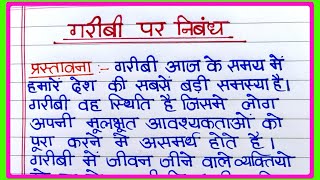 गरीबी पर निबंध
प्रस्तावना :- गरीबी आज के समय में
हमारें देश की सबसें बड़ी समस्या है।
गरीबी वह स्थिति है जिसमे लोग
अपनी मूलभूत आवश्यकताओं को
पूरा करने में असमर्थ होते हैं ।
गरीबी में जीवन जीने वाले व्यक्तियो